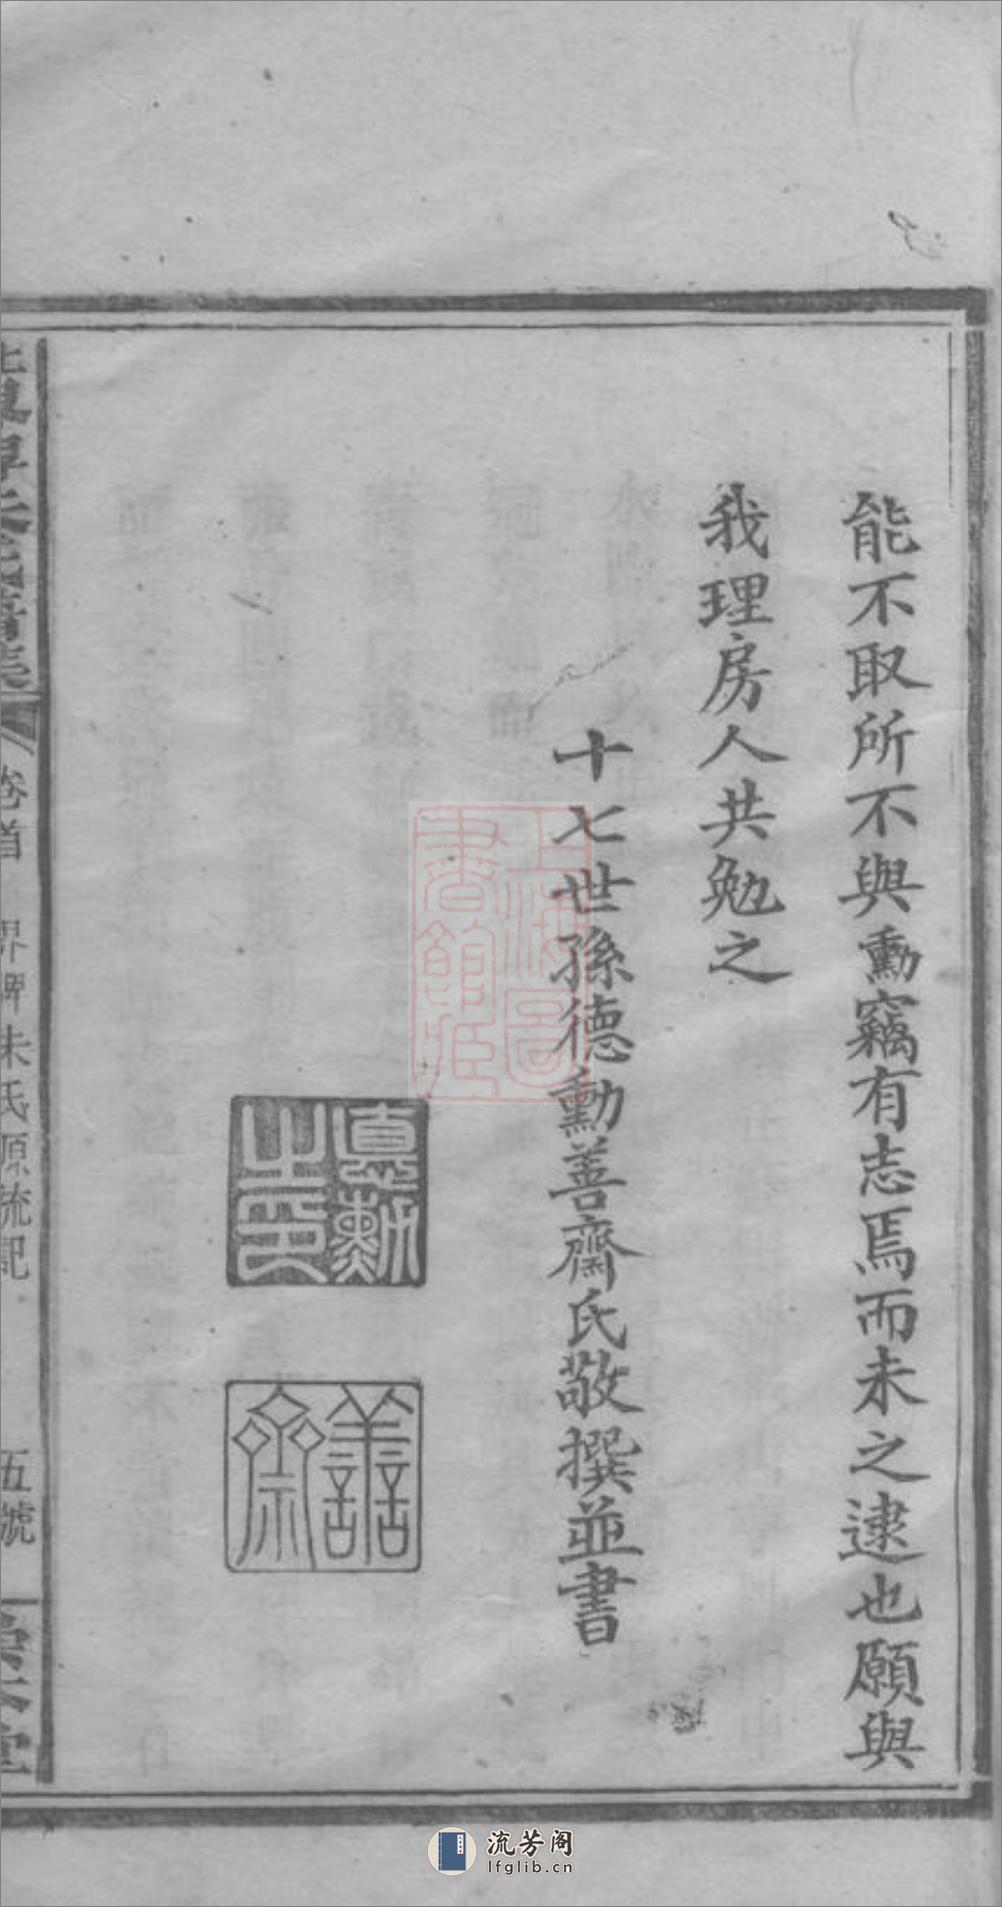 能不取所不與勳竊有志焉而未之逮也願與
我理房人共勉之
十七世孫德勳善齋氏敬撰並書
悳勳之印
善齋
上海圖書館藏
卷首 界牌朱氏原流記 五號
流芳阁
lfglib.cn